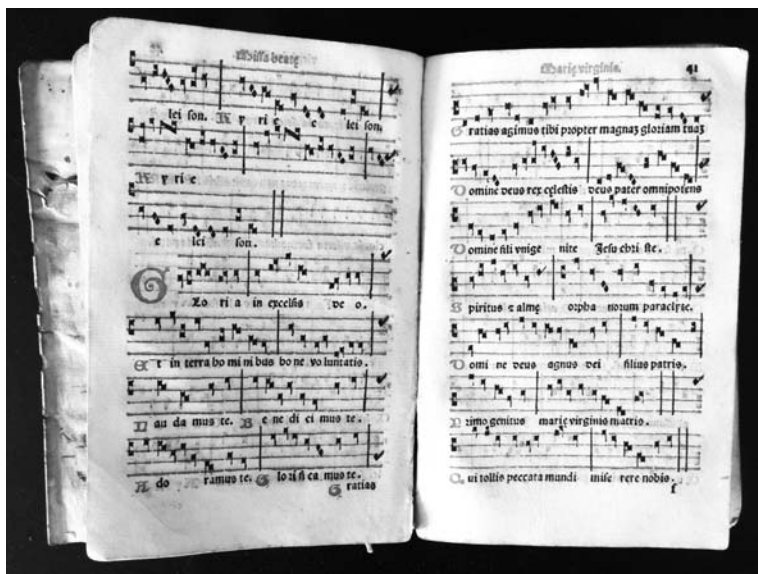 Missa beate
lei son. K y rie e lei son.
K y rie
e lei son.
G Lo ri a in excelsis de o.
E t in terra ho mi ni bus bo ne vo luntatis.
L au da mus te. B e ne di ci mus te.
A do ramus te. G lo ri fi ca mus te.
G ratias
Marię virginis. 41
G ratias agimus tibi propter magnaz gloriam tuaz
D omine deus rex celestis deus pater omnipotens
D omine fili vnige nite Jesu chri ste.
S piritus z alme orpha norum paraclyte.
D omi ne deus agnus dei filius patris.
P rimo genitus marię virginis matris.
Q ui tollis peccata mundi mise rere nobis.
f